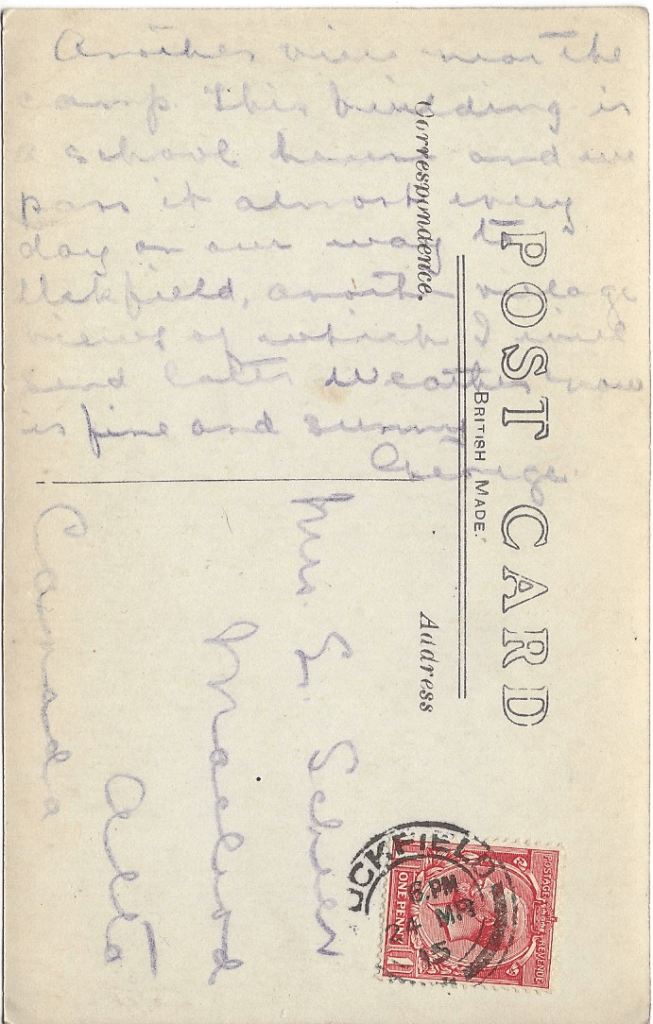 Another view near the
camp. This building is
a school house and we
pass it almost every
day on our way to
Uckfield, another village
views of which I will
send later Weather now
is fine and sunny
George.
POST CARD
BRITISH MADE.
Correspondence.
Address
Mrs. G.
Macleod
Alta
Canada
UCKFIELD
6. PM
24 MR
15
POSTAGE REVENUE
ONE PENNY